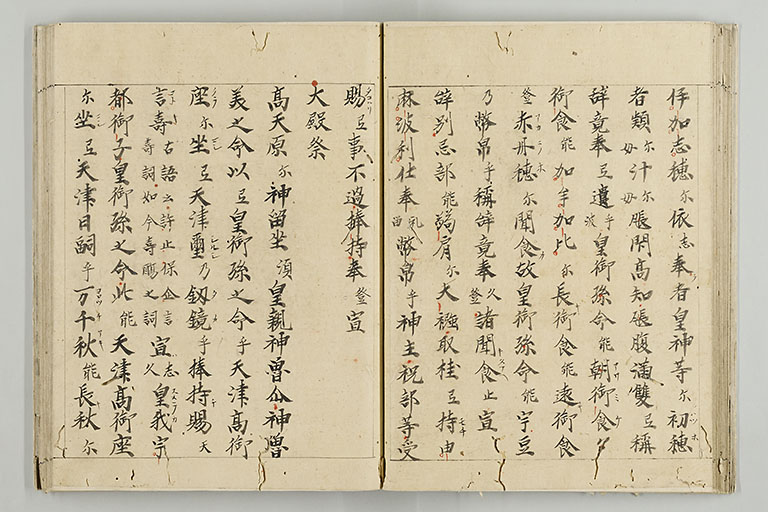 伊加志穂尓依志奉者皇神等尓初穂
者穎尓毋汁尓毋𤭖閇高知𤭖腹満雙弖稱
辞竟奉弖遺乎波皇御孫命能朝御食夕
御食能加牟加比尓長御食能遠御食
登赤丹穂尓聞食故皇御孫命能宇豆
乃幣帛乎稱辞竟奉久登諸聞食止宣
辞別忌部能弱肩尓太襁取挂弖持由
麻波利仕奉礼留幣帛乎神主祝部等受
賜弖事不過捧持奉登宣
大殿祭
高天原尓神留坐須皇親神魯企神魯
美之命以弖皇御孫之命乎天津高御
座尓坐弖天津璽乃釼鏡乎捧持賜天
言壽古語云許止保企言壽詞如今壽觴之詞宣志久皇我宇
都御子皇御孫之命此能天津高御座
尓坐弖天津日嗣乎万千秋能長秋尓